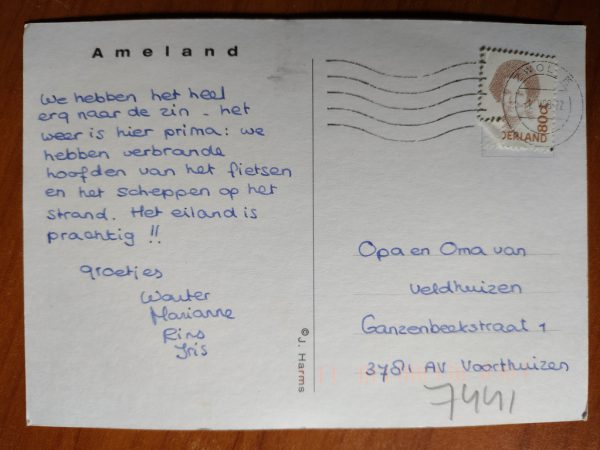 Ameland
We hebben het heel
erg naar de zin - het
weer is hier prima: we
hebben verbrande
hoofden van het fietsen
en het scheppen op het
strand. Het eiland is
prachtig !!
groetjes
Wouter
Marianne
Rins
Iris
© J. Harms
80ct
DERLAND
Opa en Oma van
Veldhuizen
Ganzenbeekstraat 1
3781 AV Voorthuizen
7441